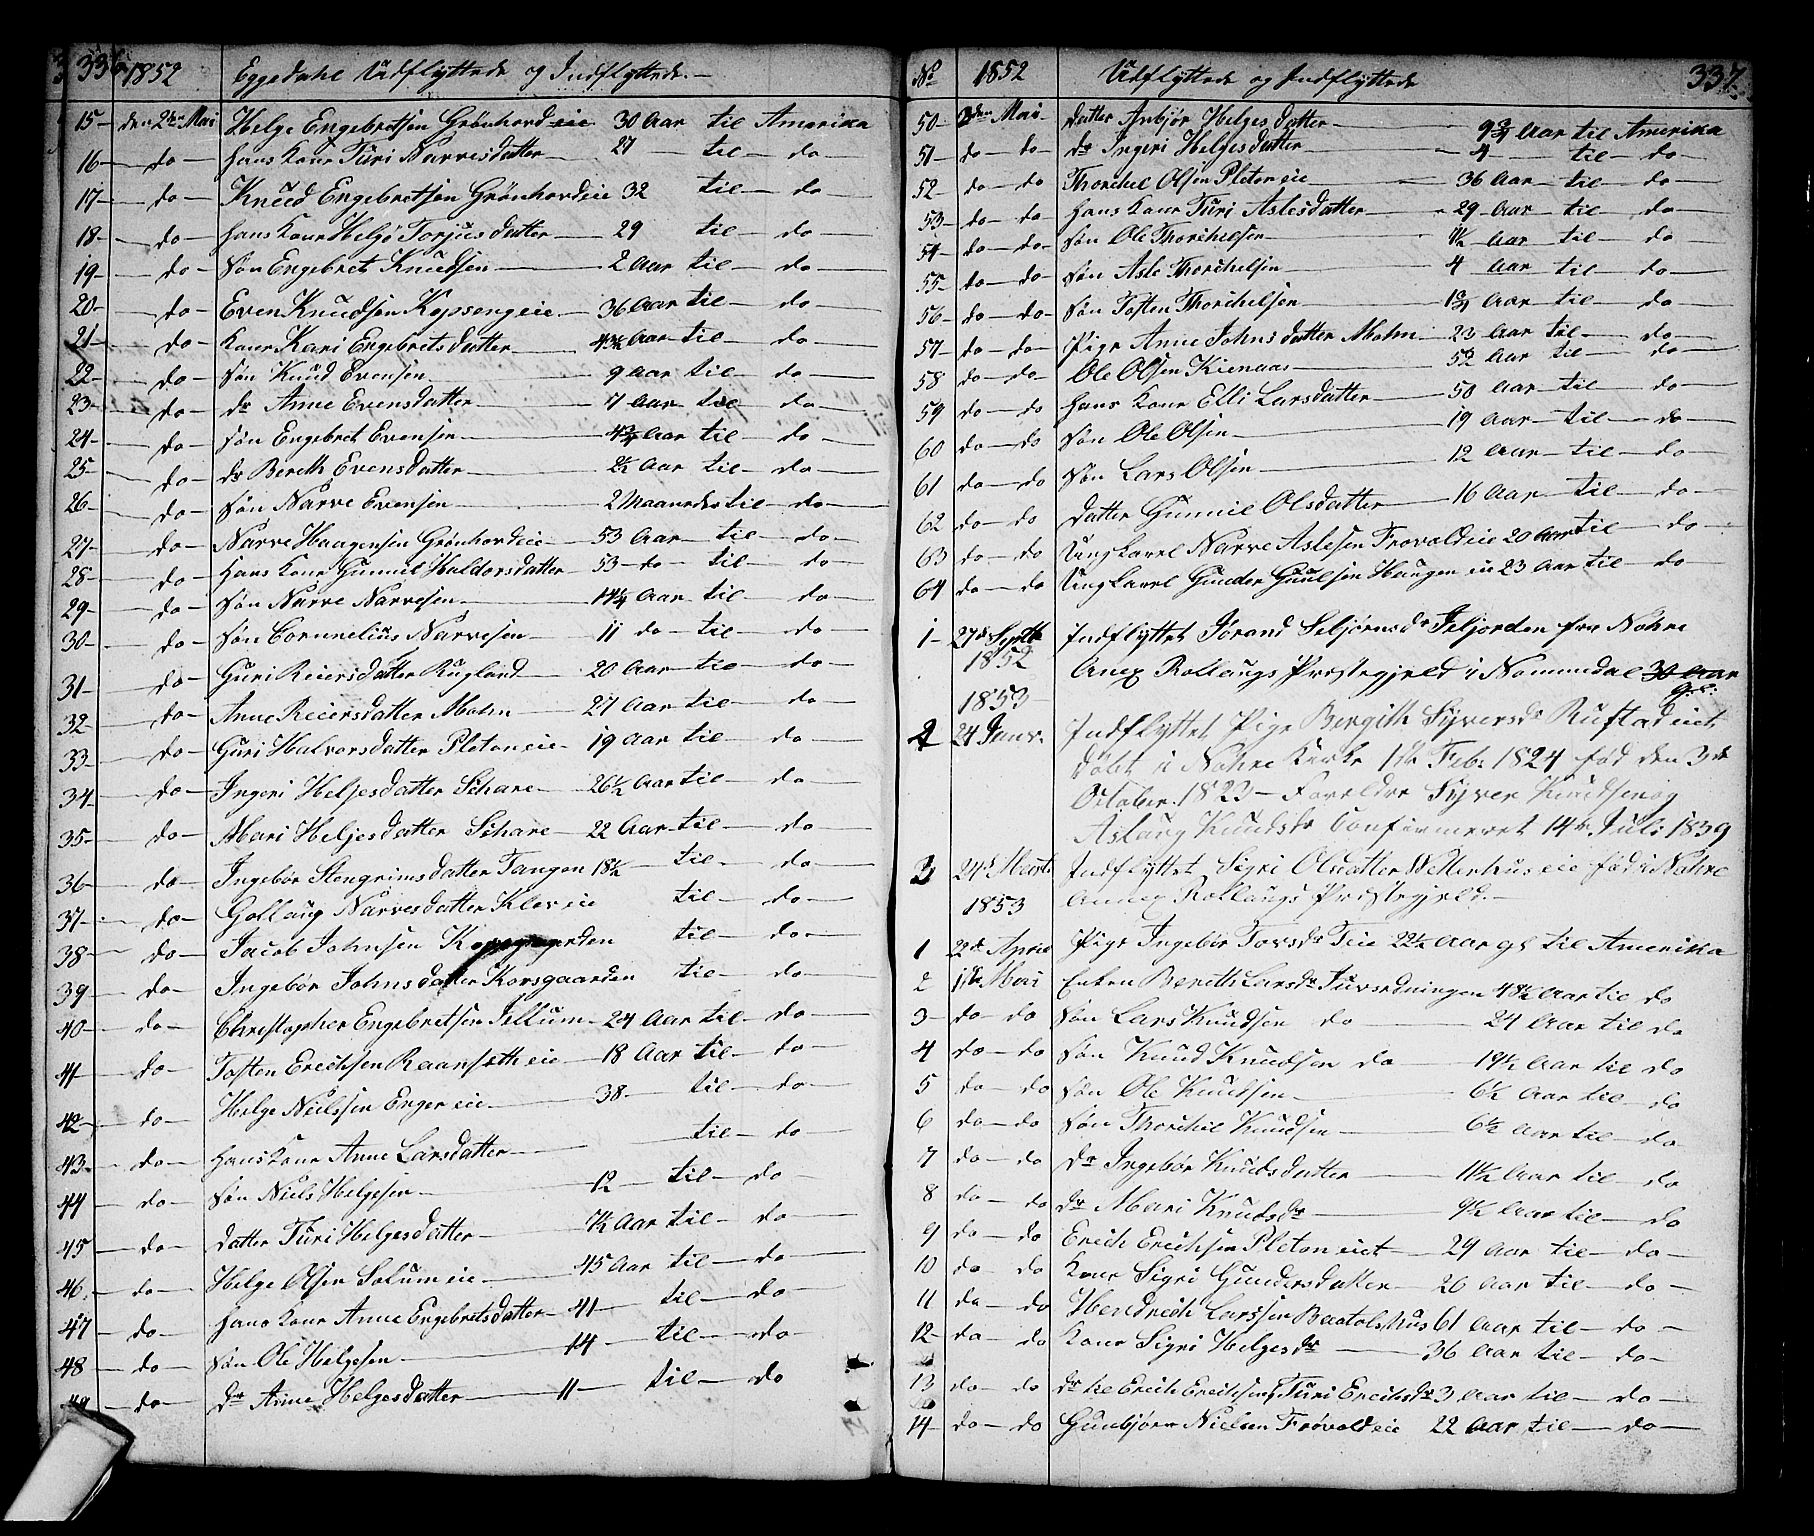 336 1852 Eggedahl Udflyttede og Indflyttede.
15 den 2den Mai Helge Engebretsen Grönhovdeie 30 Aar til Amerika
16 do hans Kone Turi Narvesdatter 27 til do
17 do Knud Engebretsen Grönhovdeie 32 til do
18 do hans Kone Helgö Torjusdatter 29 til do
19 do Sön Engebret Knudsen 2 Aar til do
20 do Even Knudsen Kopsengeie 36 Aar til do
21 do Kone Kari Engebretsdatter Aar til do
22 do Sön Knud Evensen 9 Aar til do
23 do dr Anne Evensdatter 7 Aar til do
24 do Sön Engebret Evensen 4 3/4 Aar til do
25 do dr Bereth Evensdatter 2 1/2 Aar til do
26 do Sön Narve Evensen 2 Maaneder til do
27 do Narve Haagensen Grönhovdeie 53 Aar til do
28 do hans Kone Gunnil Haldorsdatter 53 do til do
29 do Sön Narve Narvesen 14 1/4 Aar til do
30 do Sön Cornnelius Narvesen 11 do til do
31 do Guri Reiersdatter Rugland 20 Aar til do
32 do Anne Reiersdatter Mohn 27 Aar til do
33 do Guri Halvorsdatter Pletoneie 19 Aar til do
34 do Ingeri Helgesdatter Skare 26 1/2 Aar til do
35 do Mari Helgesdatter Skare 22 Aar til do
36 do Ingebör Stengrimsdatter Tangen 18 1/2 til do
37 do Gollaug Narvesdatter Kleveie til do
38 do Jacob Johnsen til do
39 do Ingebör Johnsdatter Korsgaarden til do
40 do Christopher Engebretsen Jellum 24 Aar til do
41 do Tosten Erichsen Raanseth eie 18 Aar til do
42 do Helge Nielssen Enger eie 38 til do
43 do hans Kone Anne Larsdatter til do
44 do Sön Niels Helgesen 12 til do
45 do datter Turi Helgesdatter 7 1/2 Aar til do
46 do Helge Olsen Solum eie 45 Aar til do
47 do hans Kone Anne Engebretsdatter 41 til do
48 do Sön Ole Helgesen 14 til do
49 do dr Anne Helgesdatter 11 til do
No 1852 Udflyttede og Indflyttede 337
50 2den Mai datter Anbjör Helgesdatter 9 3/4 Aar til Amerika
51 do do dr Ingeri Helgesdatter 4 til do
52 do do Thorchel Olsen Pletoneie 36 Aar til do
53 do do hans Kone Turi Aslesdatter 29 Aar til do
54 do do Sön Ole Thorchelsen Aar til do
55 do do Sön Asle Thorchelsen 4 Aar til do
56 do do Sön Tosten Thorchelsen 1 3/4 Aar til do
57 do do Pige Anne Johnsdatter Mohn 23 Aar til do
58 do do Ole Olsen Kienaas 52 Aar til do
59 do do hans Kone Elli Larsdatter 50 Aar til do
60 do do Sön Ole Olsen 19 Aar til do
61 do do Sön Lars Olsen 12 Aar til do
62 do do datter Gunnil Olsdatter 16 Aar til do
63 do do Ungkarl Narve Aslesen Frovoldeie 20 Aar til do
64 do do Ungkarl Gunder Guulsen Haugen eie 23 Aar til do
1 27de Septb 1852 Indflyttet Jörand Seljörnsdr Jeljorden fra Nohre
Anex Rollaugs Præstegjeld i Nommedal 30 Aar g:l:
1853
2 24 Janv. Indflyttet Pige Bergith Syversdr Rustadeiet
döbt i Nohre Kirke 1ste Feb: 1824 föd den 3de
October 1823 – Forældre Syver Knudsen og
Aslaug Knudsdr Confirmeret 14de Juli 1839
3 24de Marts Indflyttet Sigri Olsdatter Wetterhus eie föd i Nohre
1853 Annex Rollaugs Præstegjeld.
1 22de April Pige Ingebör Tovsdr Teie 22 1/2 Aar gl til Amerika
2 11te Mai Enken Bereth Larsdr Juvsedningen 48 1/2 Aar til do
3 do do Sön Lars Knudsen do 24 Aar til do
4 do do Sön Knud Knudsen do 19 1/2 Aar til do
5 do do Sön Ole Knudsen 6 1/2 Aar til do
6 do do Sön Thorchil Knudsen 6 1/2 Aar til do
7 do do dr Ingebör Knudsdatter 11 1/2 Aar til do
8 do do dr Mari Knudsdr 9 1/2 Aar til do
9 do do Erich Erichsen Pleton eiet 29 Aar til do
10 do do Kone Sigri Gundersdatter 26 Aar til do
11 do do Hendrech Larssen Baatolshus 61 Aar til do
12 do do Kone Sigri Helgesdr 36 Aar til do
13 do do dr til Erich Erichsen Turi Erichsdr 3 Aar til do
14 do do Gunbjörn Nielsen Frövoldeie 22 Aar til do